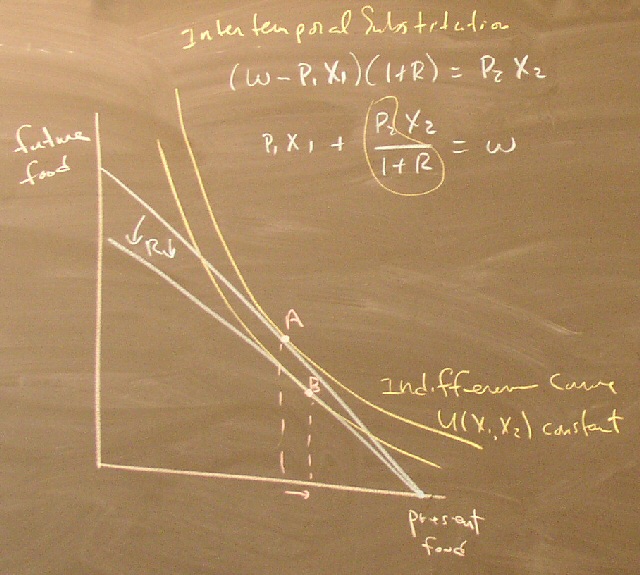 Intertemporal Substitution
(W - P₁X₁)(1+R) = P₂X₂
P₁X₁ + P₂X₂ / 1+R = W
future
food
↓R↓
A
B
Indifference Curve
U(X₁,X₂) constant
present
food